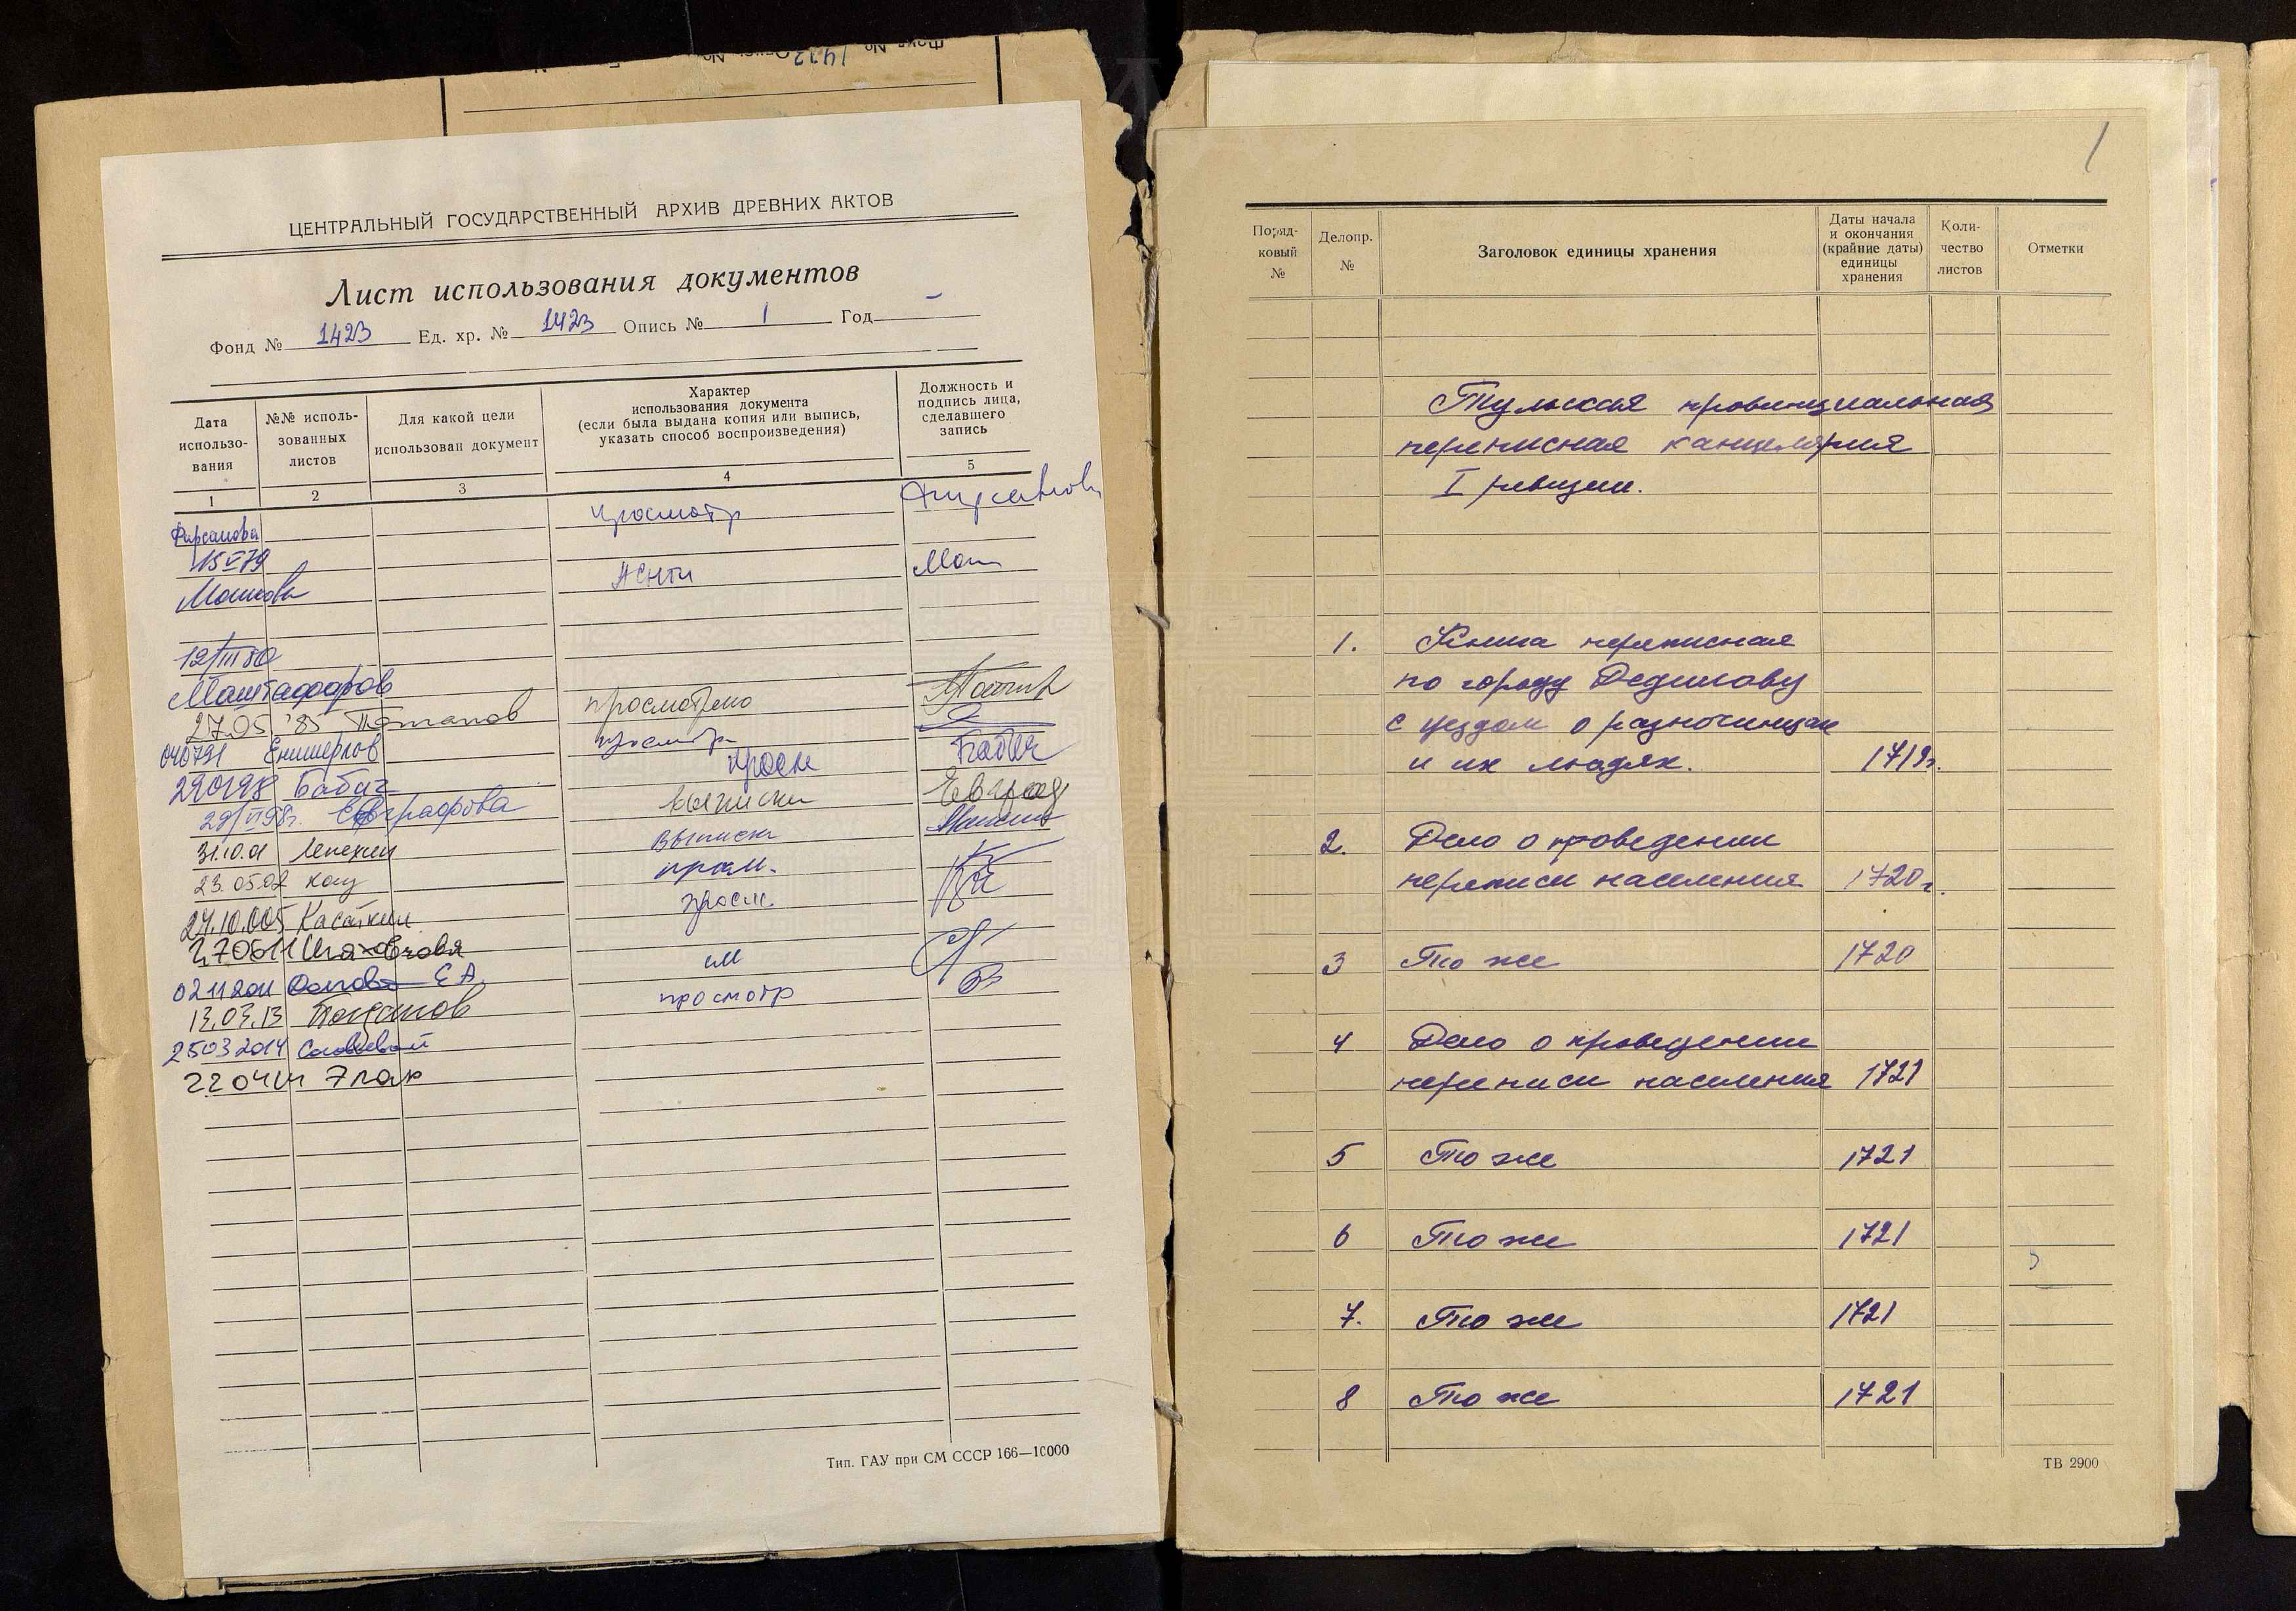 ЦЕНТРАЛЬНЫЙ ГОСУДАРСТВЕННЫЙ АРХИВ ДРЕВНИХ АКТОВ
Лист использования документов
Фонд № 1423 Ед. хр. № 1423 Опись № 1 Год –
Дата использо-вания
№№ исполь-зованных листов
Для какой цели использован документ
Характер использования документа (если была выдана копия или выпись, указать способ воспроизведения)
Должность и подпись лица, сделавшего запись
1 2 3 4 5
Фирсанова просмотр
15 V 79
Машкова
12/III 80
Маштафаров
27.05 '85 Потапов просмотрено
040791 Енишерлов просмотр
290198 Бабич просм Бабич
29/VI 98г. Евграфова выписки Евграф
31.10.01 выписки
23.05.02 Кац прсм.
24.10.005 Касаткин просм.
270611
02112011 Е А.
13.03.13 просмотр
25032014
220414
Тип. ГАУ при СМ СССР 166—10000
1
Поряд-ковый №
Делопр. №
Заголовок единицы хранения
Даты начала и окончания (крайние даты) единицы хранения
Коли-чество листов
Отметки
Тульская провинциальная
переписная канцелярия
I ревизии.
1. Книга переписная
по городу Дедилову
с уездом о разночинцах
и их людях. 1719г.
2. Дело о проведении
переписи населения 1720г.
3 То же 1720
4 Дело о проведении
переписи населения 1721
5 То же 1721
6 То же 1721
7. То же 1721
8 То же 1721
ТВ 2900